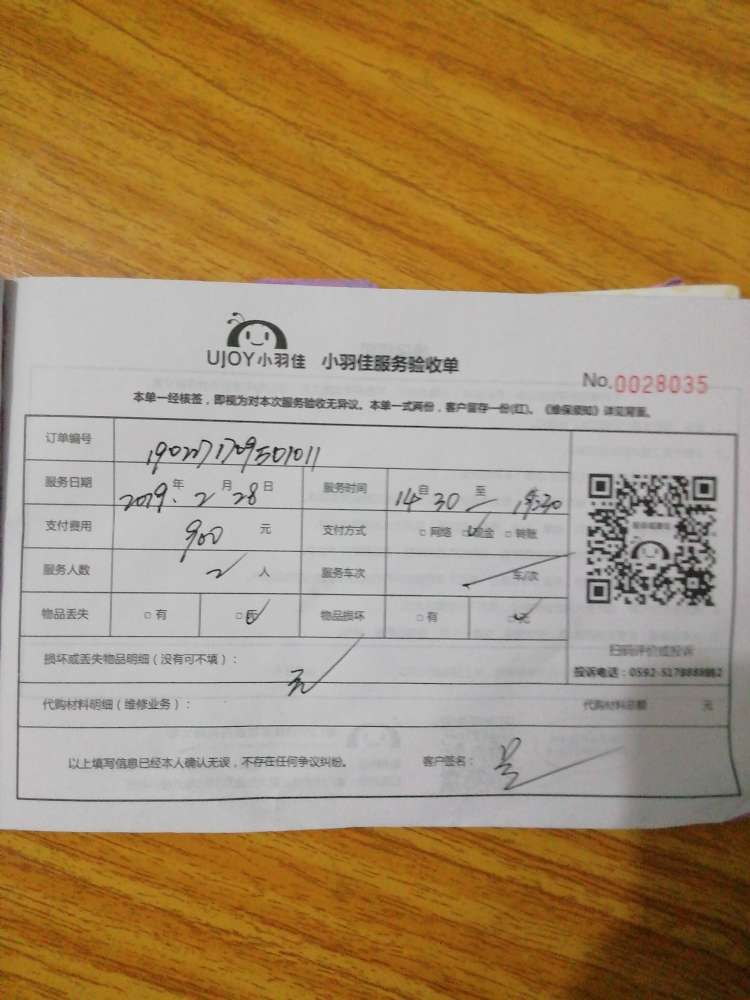 UJOY小羽佳 小羽佳服务验收单
No.0028035
本单一经核签，即视为对本次服务验收无异议。本单一式两份，客户留存一份(红)。《维保须知》详见背面。
订单编号 1902271709501011
服务日期 2019年2月28日 服务时间 14自30至19:30
支付费用 900元 支付方式 □网络 □现金 □转账
服务人数 2人 服务车次 车/次
物品丢失 □有 □无 物品损坏 □有 □无
扫码评价或投诉
损坏或丢失物品明细（没有可不填）： 无
投诉电话：0592-5178888
代购材料明细（维修业务）： 代购材料总额 元
以上填写信息已经本人确认无误，不存在任何争议纠纷。 客户签名：